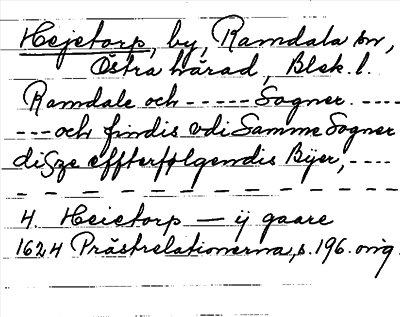 Hejetorp, by, Ramdala sn,
Östra härad, Blek. l.
Ramdale och ----- Sogner. ----
--- och findis vdi Samme Sogner
disze effterfølgendis Byer, ----
- - - - - - - - - - - - -
4. Heietorp — ij gaare
1624 Prästrelationerna, s. 196. orig.